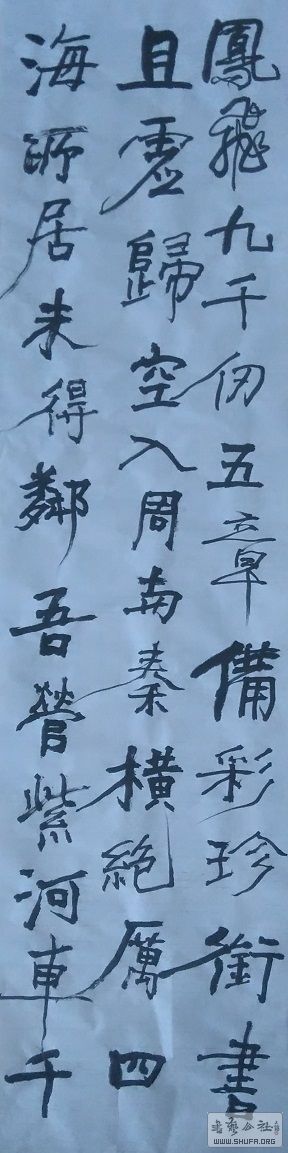 鳳飛九千仞五章備彩珍銜書
且虛歸空入周與秦橫絕厲四
海所居未得鄰吾營紫河車千
书艺公社
WWW.SHUFA.ORG